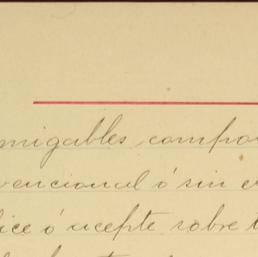 migables compo
vencional ó sin e
ice ó acepte sobre